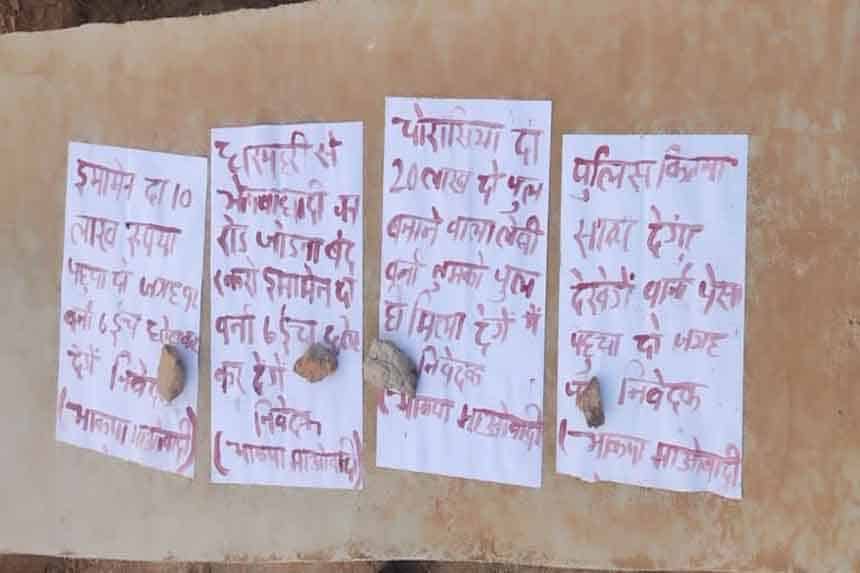 इमामेन दा 10
लाख रूपया
पहुचा दो जगह पर
वर्ना 6 इंच छोटा कर
देगें निवेदक
(भाकपा माओवादी)
से
रोड जोडना बंद
करो इमामेन दो
वर्ना 6 ईंच छोटा
कर देगें
निवेदक
(भाकपा माओवादी)
चोरासिया दा
20 लाख दो पुल
बनाने वाला लेवी
वर्ना तुमको पुल
मिला देगें में
निवेदक
(भाकपा माओवादी
पुलिस कितना
साथ देगा
देखेगें वर्ना पेसा
पहुचा दो जगह
पर निवेदक
(भाकपा माओवादी